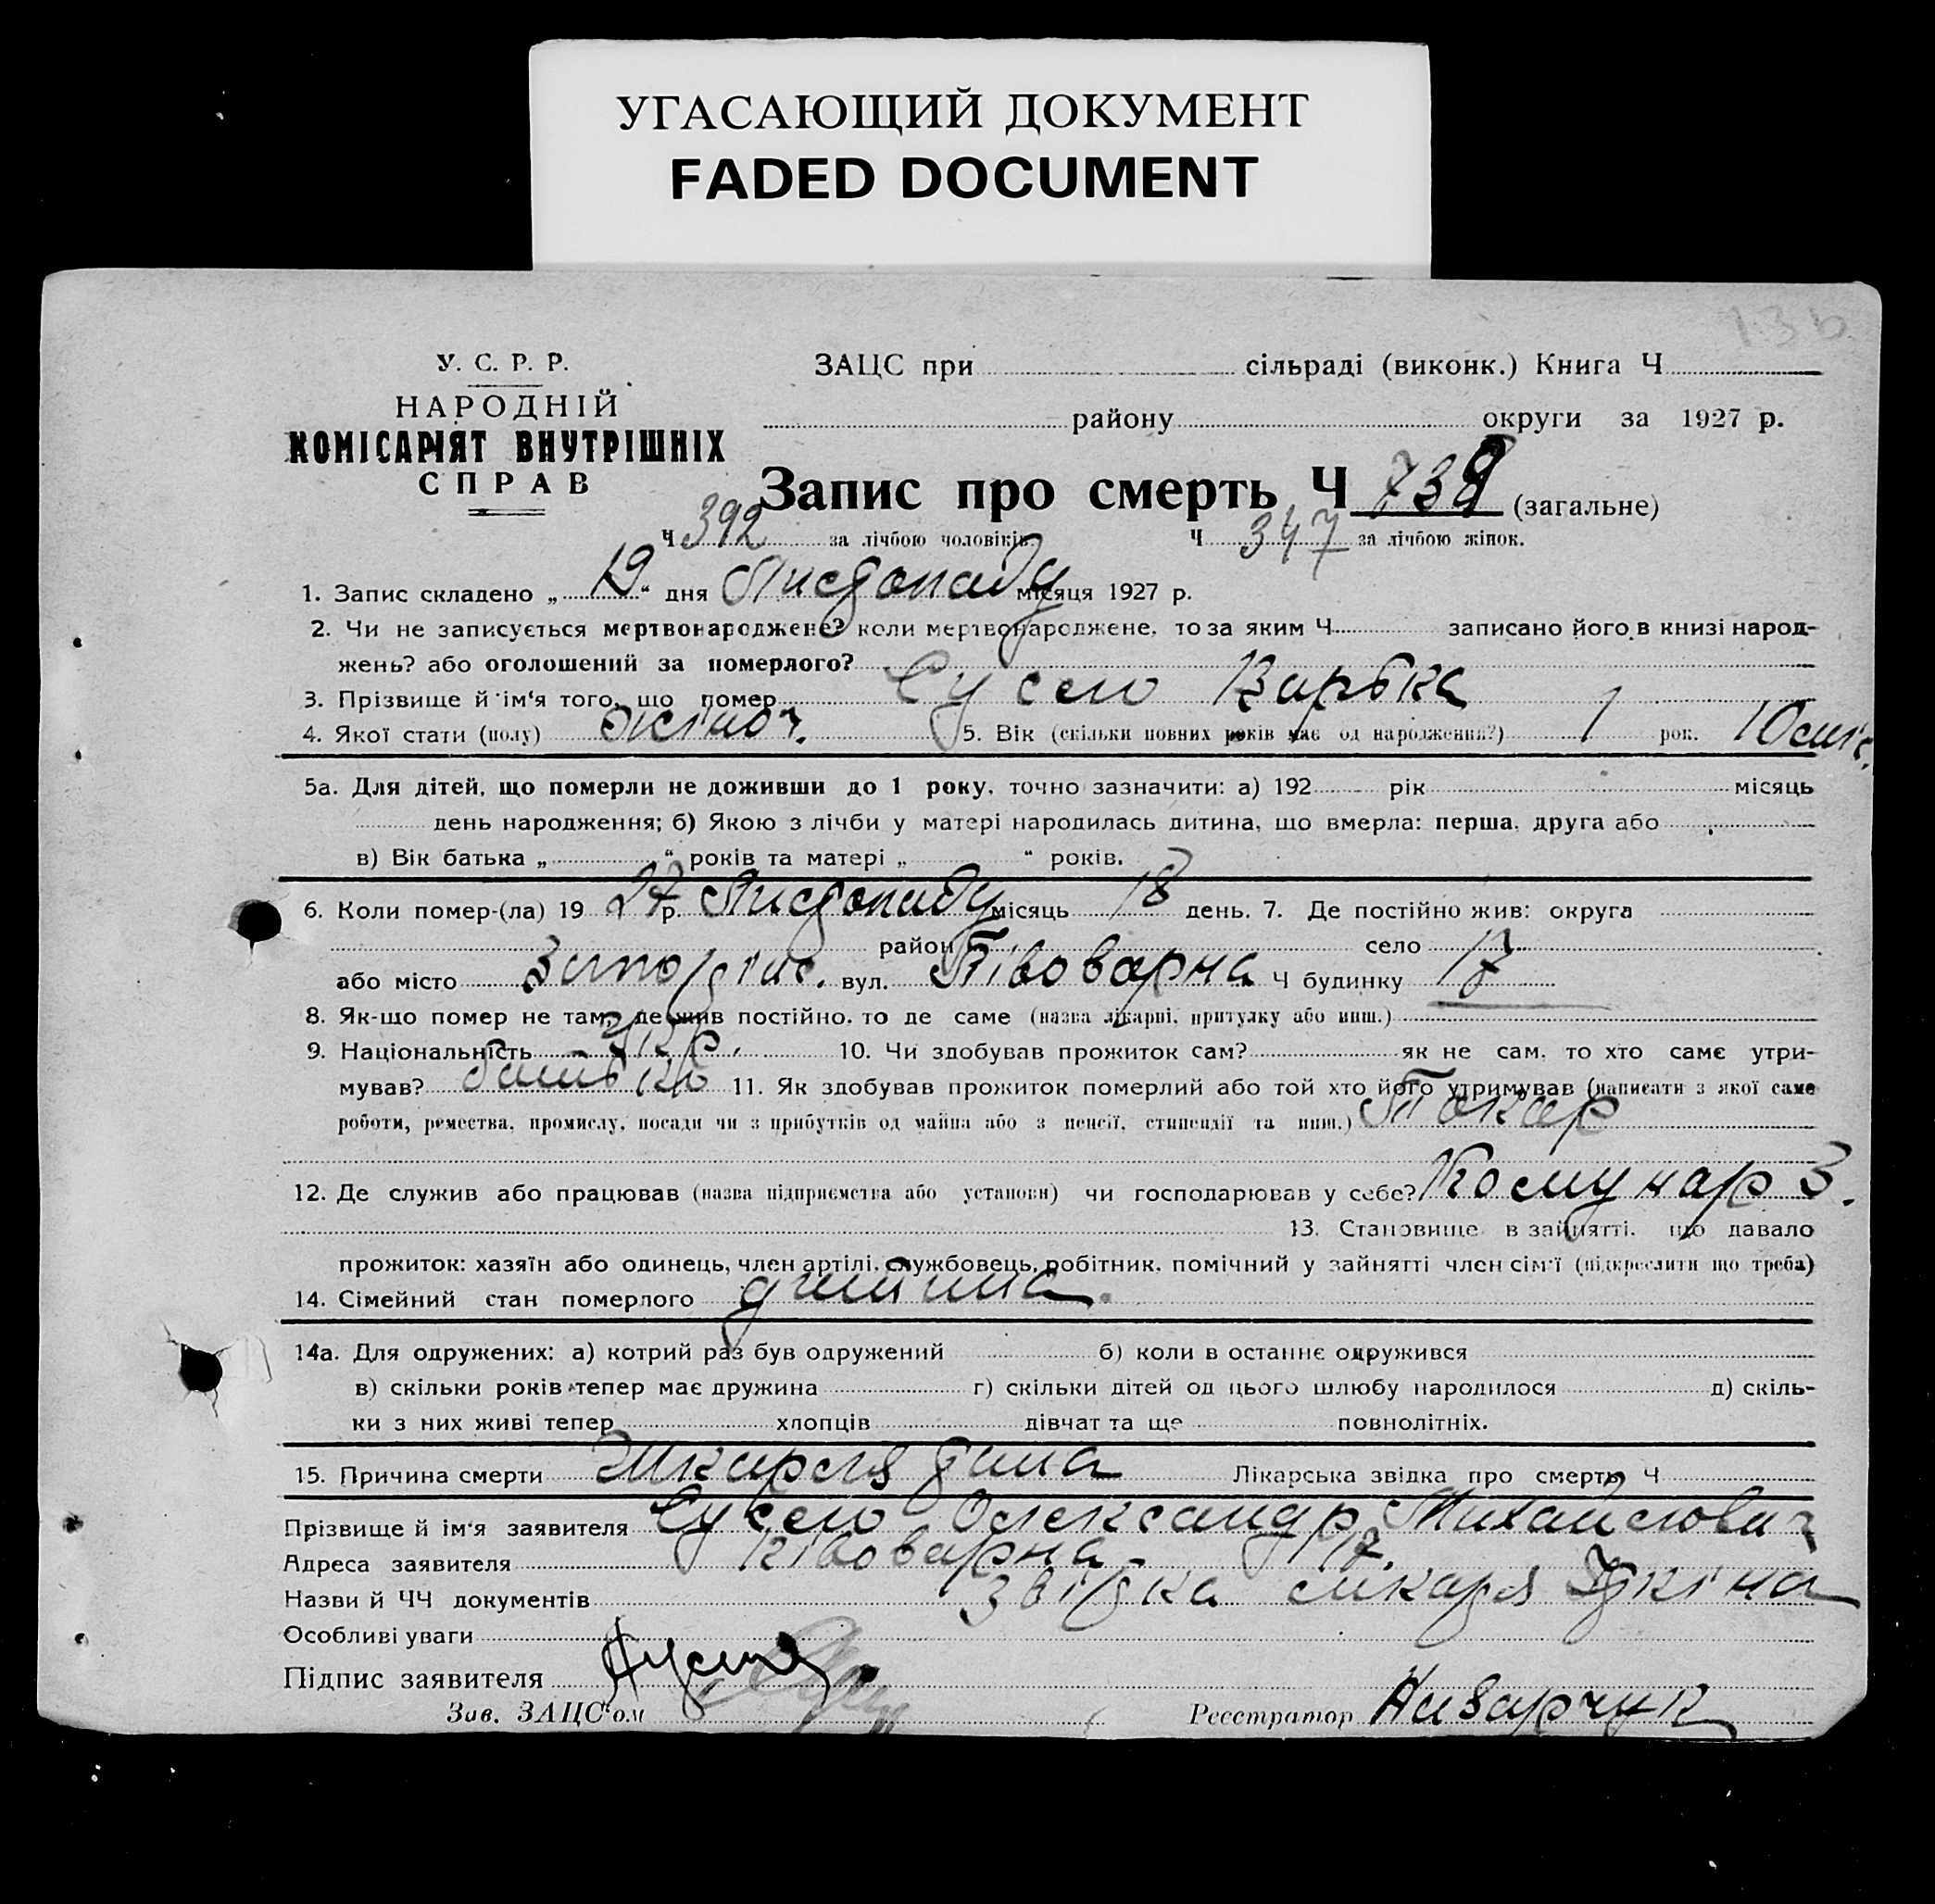 УГАСАЮЩИЙ ДОКУМЕНТ
FADED DOCUMENT
У. С. Р. Р.
НАРОДНІЙ
КОМІСАРІЯТ ВНУТРІШНІХ
СПРАВ
ЗАЦС при сільраді (виконк.) Книга Ч
району округи за 1927 р.
Запис про смерть Ч 739 (загальне)
Ч 392 за лічбою чоловіків. Ч 347 за лічбою жінок.
1. Запис складено „ 19 “ дня Листопаду місяця 1927 р.
2. Чи не записується мертвонароджене? коли мертвонароджене, то за яким Ч записано його в книзі народ-
жень? або оголошений за померлого?
3. Прізвище й ім‘я того, що помер Сусло Варька
4. Якої стати (полу) жіноч. 5. Вік (скільки повних років має од народження?) 1 рок. 10 міс.
5а. Для дітей, що померли не доживши до 1 року, точно зазначити: а) 192 рік місяць
день народження; б) Якою з лічби у матері народилась дитина, що вмерла: перша, друга або
в) Вік батька „ “ років та матері „ “ років.
6. Коли помер-(ла) 19 27 р. Листопаду місяць 18 день. 7. Де постійно жив: округа
район село
або місто вул. Півоварна Ч будинку 17
8. Як-що помер не там, де жив постійно, то де саме (назва лікарні, притулку або инш.)
9. Національність Укр. 10. Чи здобував прожиток сам? як не сам, то хто саме утри-
мував? батько 11. Як здобував прожиток померлий або той хто його утримував (написати з якої саме
роботи, ремества, промислу, посади чи з прибутків од майна або з пенсії, стипендії та инш.) Токар
12. Де служив або працював (назва підприємства або установи) чи господарював у себе? Комунар З.
13. Становище в зайнятті, що давало
прожиток: хазяїн або одинець, член артілі, службовець, робітник, помічний у зайнятті член сім‘ї (підкреслити що треба)
14. Сімейний стан померлого дитина.
14а. Для одружених: а) котрий раз був одружений б) коли в останнє одружився
в) скільки років тепер має дружина г) скільки дітей од цього шлюбу народилося д) скіль-
ки з них живі тепер хлопців дівчат та ще повнолітніх.
15. Причина смерти Шкарлятина Лікарська звідка про смерть Ч
Прізвище й ім‘я заявителя Сусло Олександр Михайлович
Адреса заявителя Півоварна 17.
Назви й ЧЧ документів Звідка лікаря
Особливі уваги
Підпис заявителя
Зав. ЗАЦС‘ом Реєстратор Назарчук